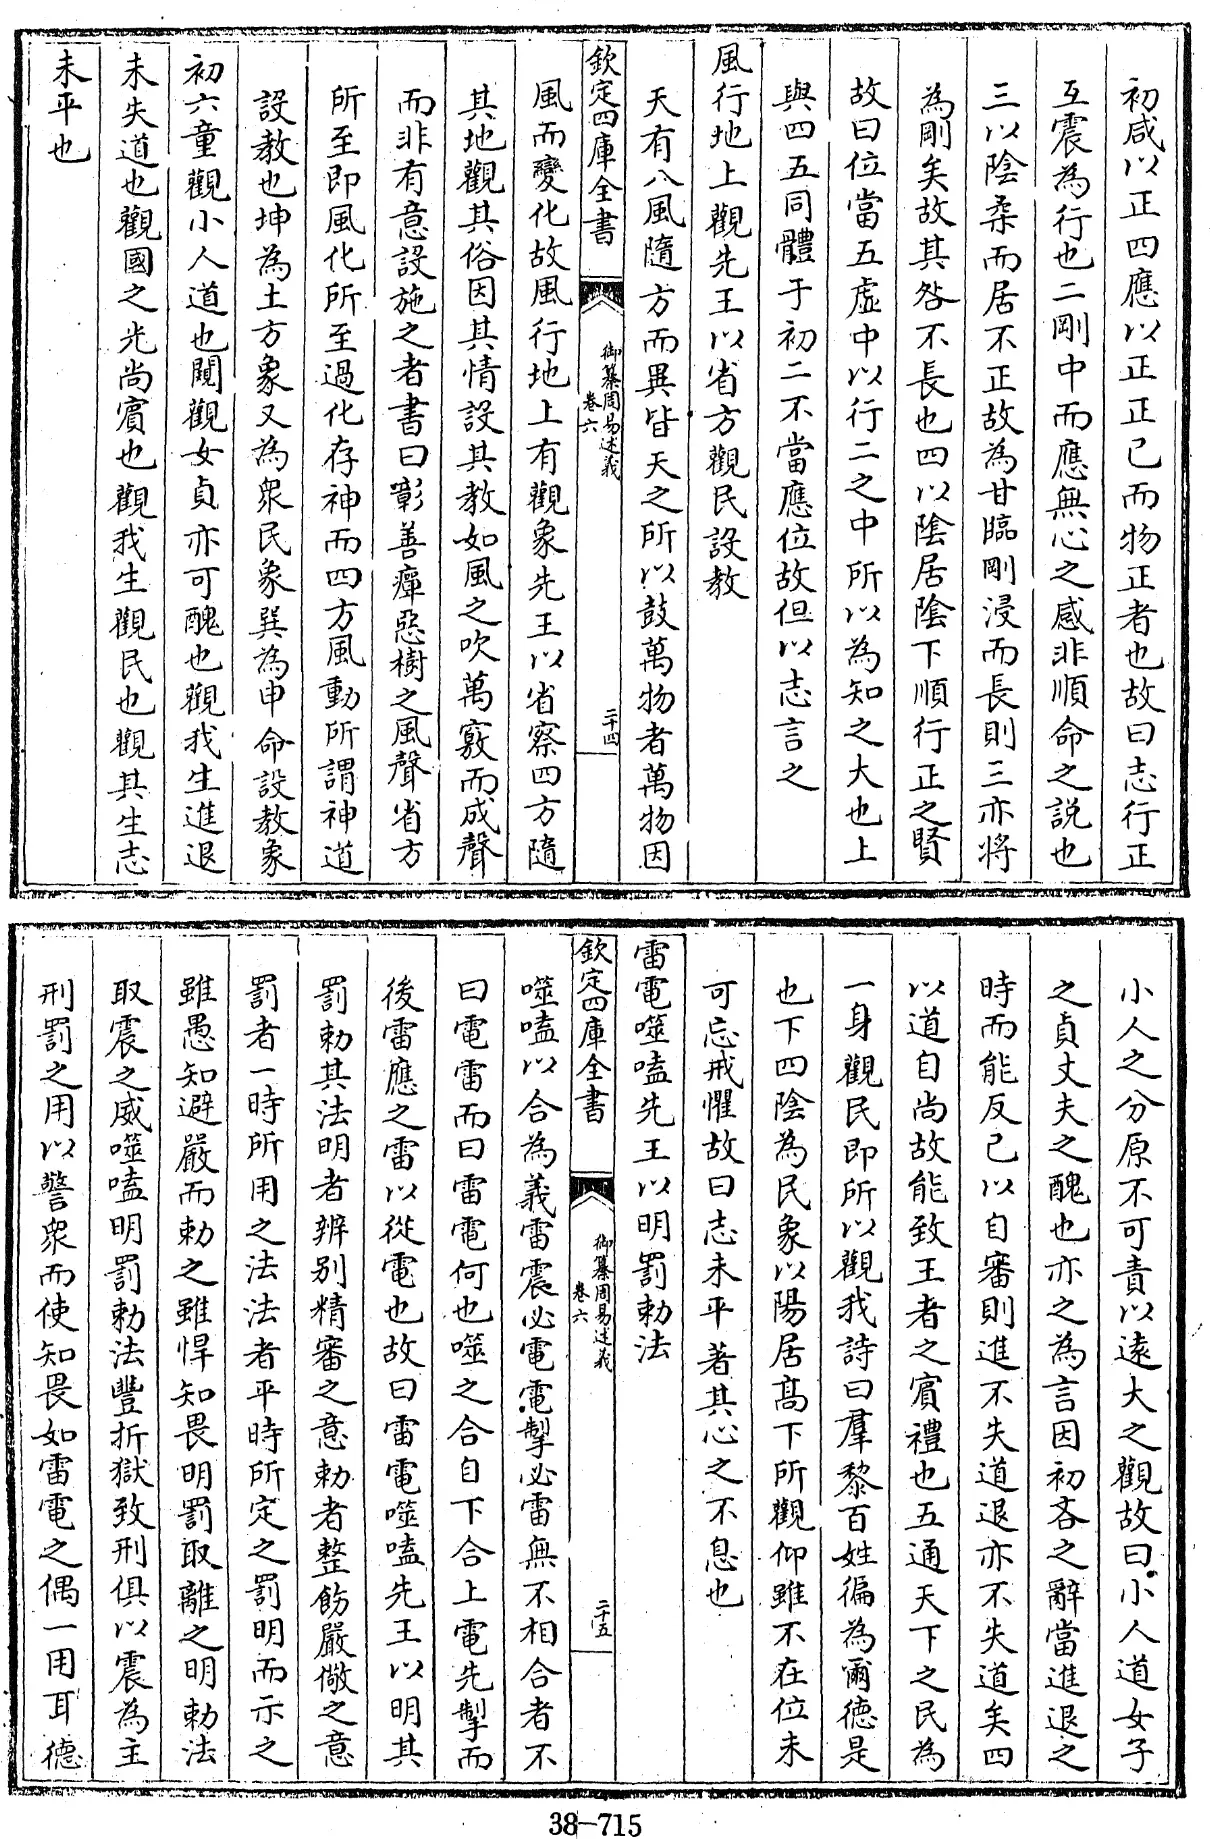 初咸以正四應以正正已而物正者也故曰志行正
互震為行也二剛中而應無心之感非順命之説也
三以陰柔而居不正故為甘臨剛浸而長則三亦將
為剛矣故其咎不長也四以陰居陰下順行正之賢
故曰位當五虛中以行二之中所以為知之大也上
與四五同體于初二不當應位故但以志言之
風行地上觀先王以省方觀民設教
天有八風隨方而異皆天之所以鼓萬物者萬物因
欽定四庫全書
御纂周易述義
卷六
二十四
風而變化故風行地上有觀象先王以省察四方隨
其地觀其俗因其情設其教如風之吹萬竅而成聲
而非有意設施之者書曰彰善癉惡樹之風聲省方
所至即風化所至過化存神而四方風動所謂神道
設教也坤為土方象又為衆民象巽為申命設教象
初六童觀小人道也闚觀女貞亦可醜也觀我生進退
未失道也觀國之光尚賓也觀我生觀民也觀其生志
未平也
小人之分原不可責以遠大之觀故曰小人道女子
之貞丈夫之醜也亦之為言因初吝之辭當進退之
時而能反己以自審則進不失道退亦不失道矣四
以道自尚故能致王者之賓禮也五通天下之民為
一身觀民即所以觀我詩曰羣黎百姓徧為爾德是
也下四陰為民象以陽居高下所觀仰雖不在位未
可忘戒懼故曰志未平著其心之不息也
雷電噬嗑先王以明罰勅法
欽定四庫全書
御纂周易述義
卷六
二十五
噬嗑以合為義雷震必電電掣必雷無不相合者不
曰電雷而曰雷電何也噬之合自下合上電先掣而
後雷應之雷以從電也故曰雷電噬嗑先王以明其
罰勅其法明者辨别精審之意勅者整飭嚴儆之意
罰者一時所用之法法者平時所定之罰明而示之
雖愚知避嚴而勅之雖悍知畏明罰取離之明勅法
取震之威噬嗑明罰勅法豐折獄致刑俱以震為主
刑罰之用以警衆而使知畏如雷電之偶一用耳德
38-715